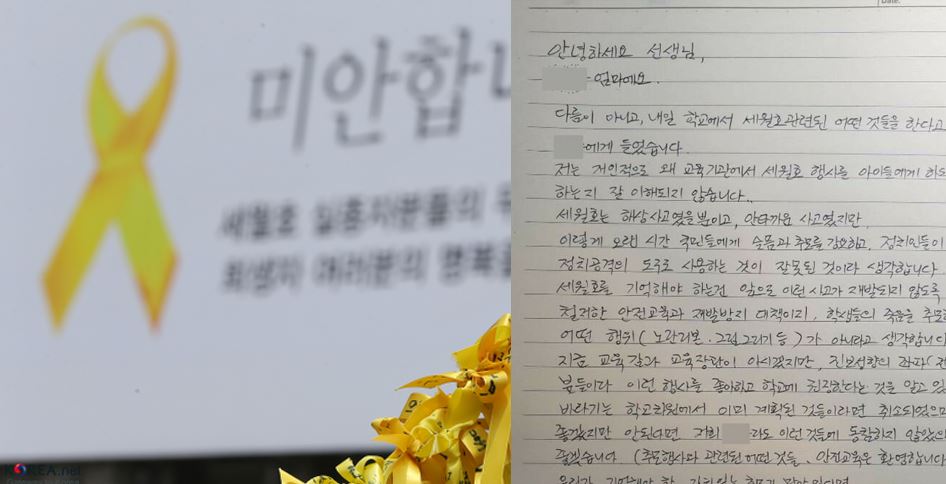 미안합니
세월호 실종자분들의
희생자 여러분의 명복을
KOREA.net
Date.
안녕하세요 선생님,
엄마에요.
다름이 아니고, 내일 학교에서 세월호관련된 어떤 것들을 한다고
에게 들었습니다.
저는 개인적으로 왜 교육기관에서 세월호 행사를 아이들에게 하도
하는지 잘 이해되지 않습니다..
세월호는 해상사고였을뿐이고, 안타까운 사고였지만,
이렇게 오랜 시간 국민들에게 슬픔과 추모를 강요하고, 정치인들이
정치공격의 도구로 사용하는 것이 잘못된 것이라 생각합니다.
세월호를 기억해야 하는건 앞으로 이런 사고가 재발되지 않도록
철저한 안전교육과 재발방지 대책이지, 학생들의 죽음을 추모하
어떤 행위(노란리본.그림그리기 등)가 아니라고 생각합니다
지금 교육감과 교육장관이 아시겠지만, 진보성향의 좌파(전
분들이라 이런 행사를 좋아하고 학교에 권장한다는 것을 알고 있
바라기는 학교차원에서 이미 계획된 것들이라면 취소되었으면
좋겠지만 안된다면 저희 라도 이런 것들에 동참하지 않았으
좋겠습니다 (추모행사와 관련된 어떤 것들. 안전교육은 환영합니다
우리가 기억해야 할